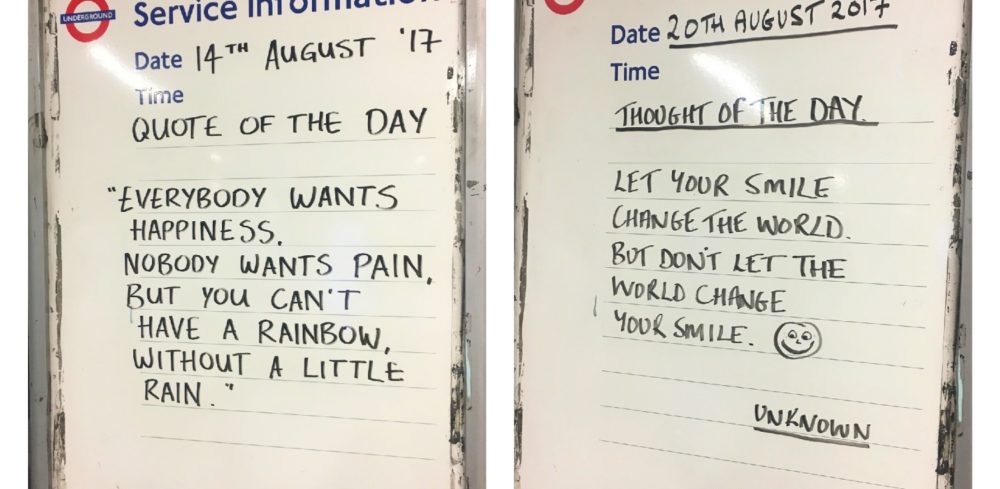 UNDERGROUND
Service Information
Date 14TH AUGUST '17
Time
QUOTE OF THE DAY
"EVERYBODY WANTS
HAPPINESS.
NOBODY WANTS PAIN,
BUT YOU CAN'T
HAVE A RAINBOW,
WITHOUT A LITTLE
RAIN."
Date 20TH AUGUST 2017
Time
THOUGHT OF THE DAY.
LET YOUR SMILE
CHANGE THE WORLD.
BUT DON'T LET THE
WORLD CHANGE
YOUR SMILE.
UNKNOWN